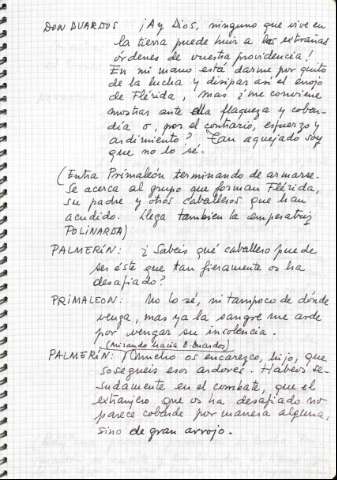 DON DUARDOS ¡Ay Dios, ninguno que vive en
la tierra puede huir a las extrañas
órdenes de vuestra providencia!
En mi mano está darme por quito
de la lucha y divisar así el enojo
de Flérida, mas ¿me conviene
mostrar ante ella flaqueza y cobar-
día o, por el contrario, esfuerzo y
ardimiento? Tan aquejado soy
que no lo sé.
(Entra Primaleón terminando de armarse.
Se acerca al grupo que forman Flérida,
su padre y otros caballeros que han
acudido. Llega también la emperatriz
POLINARDA)
PALMERÍN: ¿Sabéis qué caballero puede
ser éste que tan fieramente os ha
desafiado?
PRIMALEON: No lo sé, ni tampoco de dónde
venga, mas ya la sangre me arde
por vengar su insolencia.
(Mirando hacia D. Duardos)
PALMERÍN: Mucho os encarezco, hijo, que
soseguéis esos ardores. Habeos se-
sudamente en el combate, que el
extranjero que os ha desafiado no
parece cobarde por manera alguna,
sino de gran arrojo.